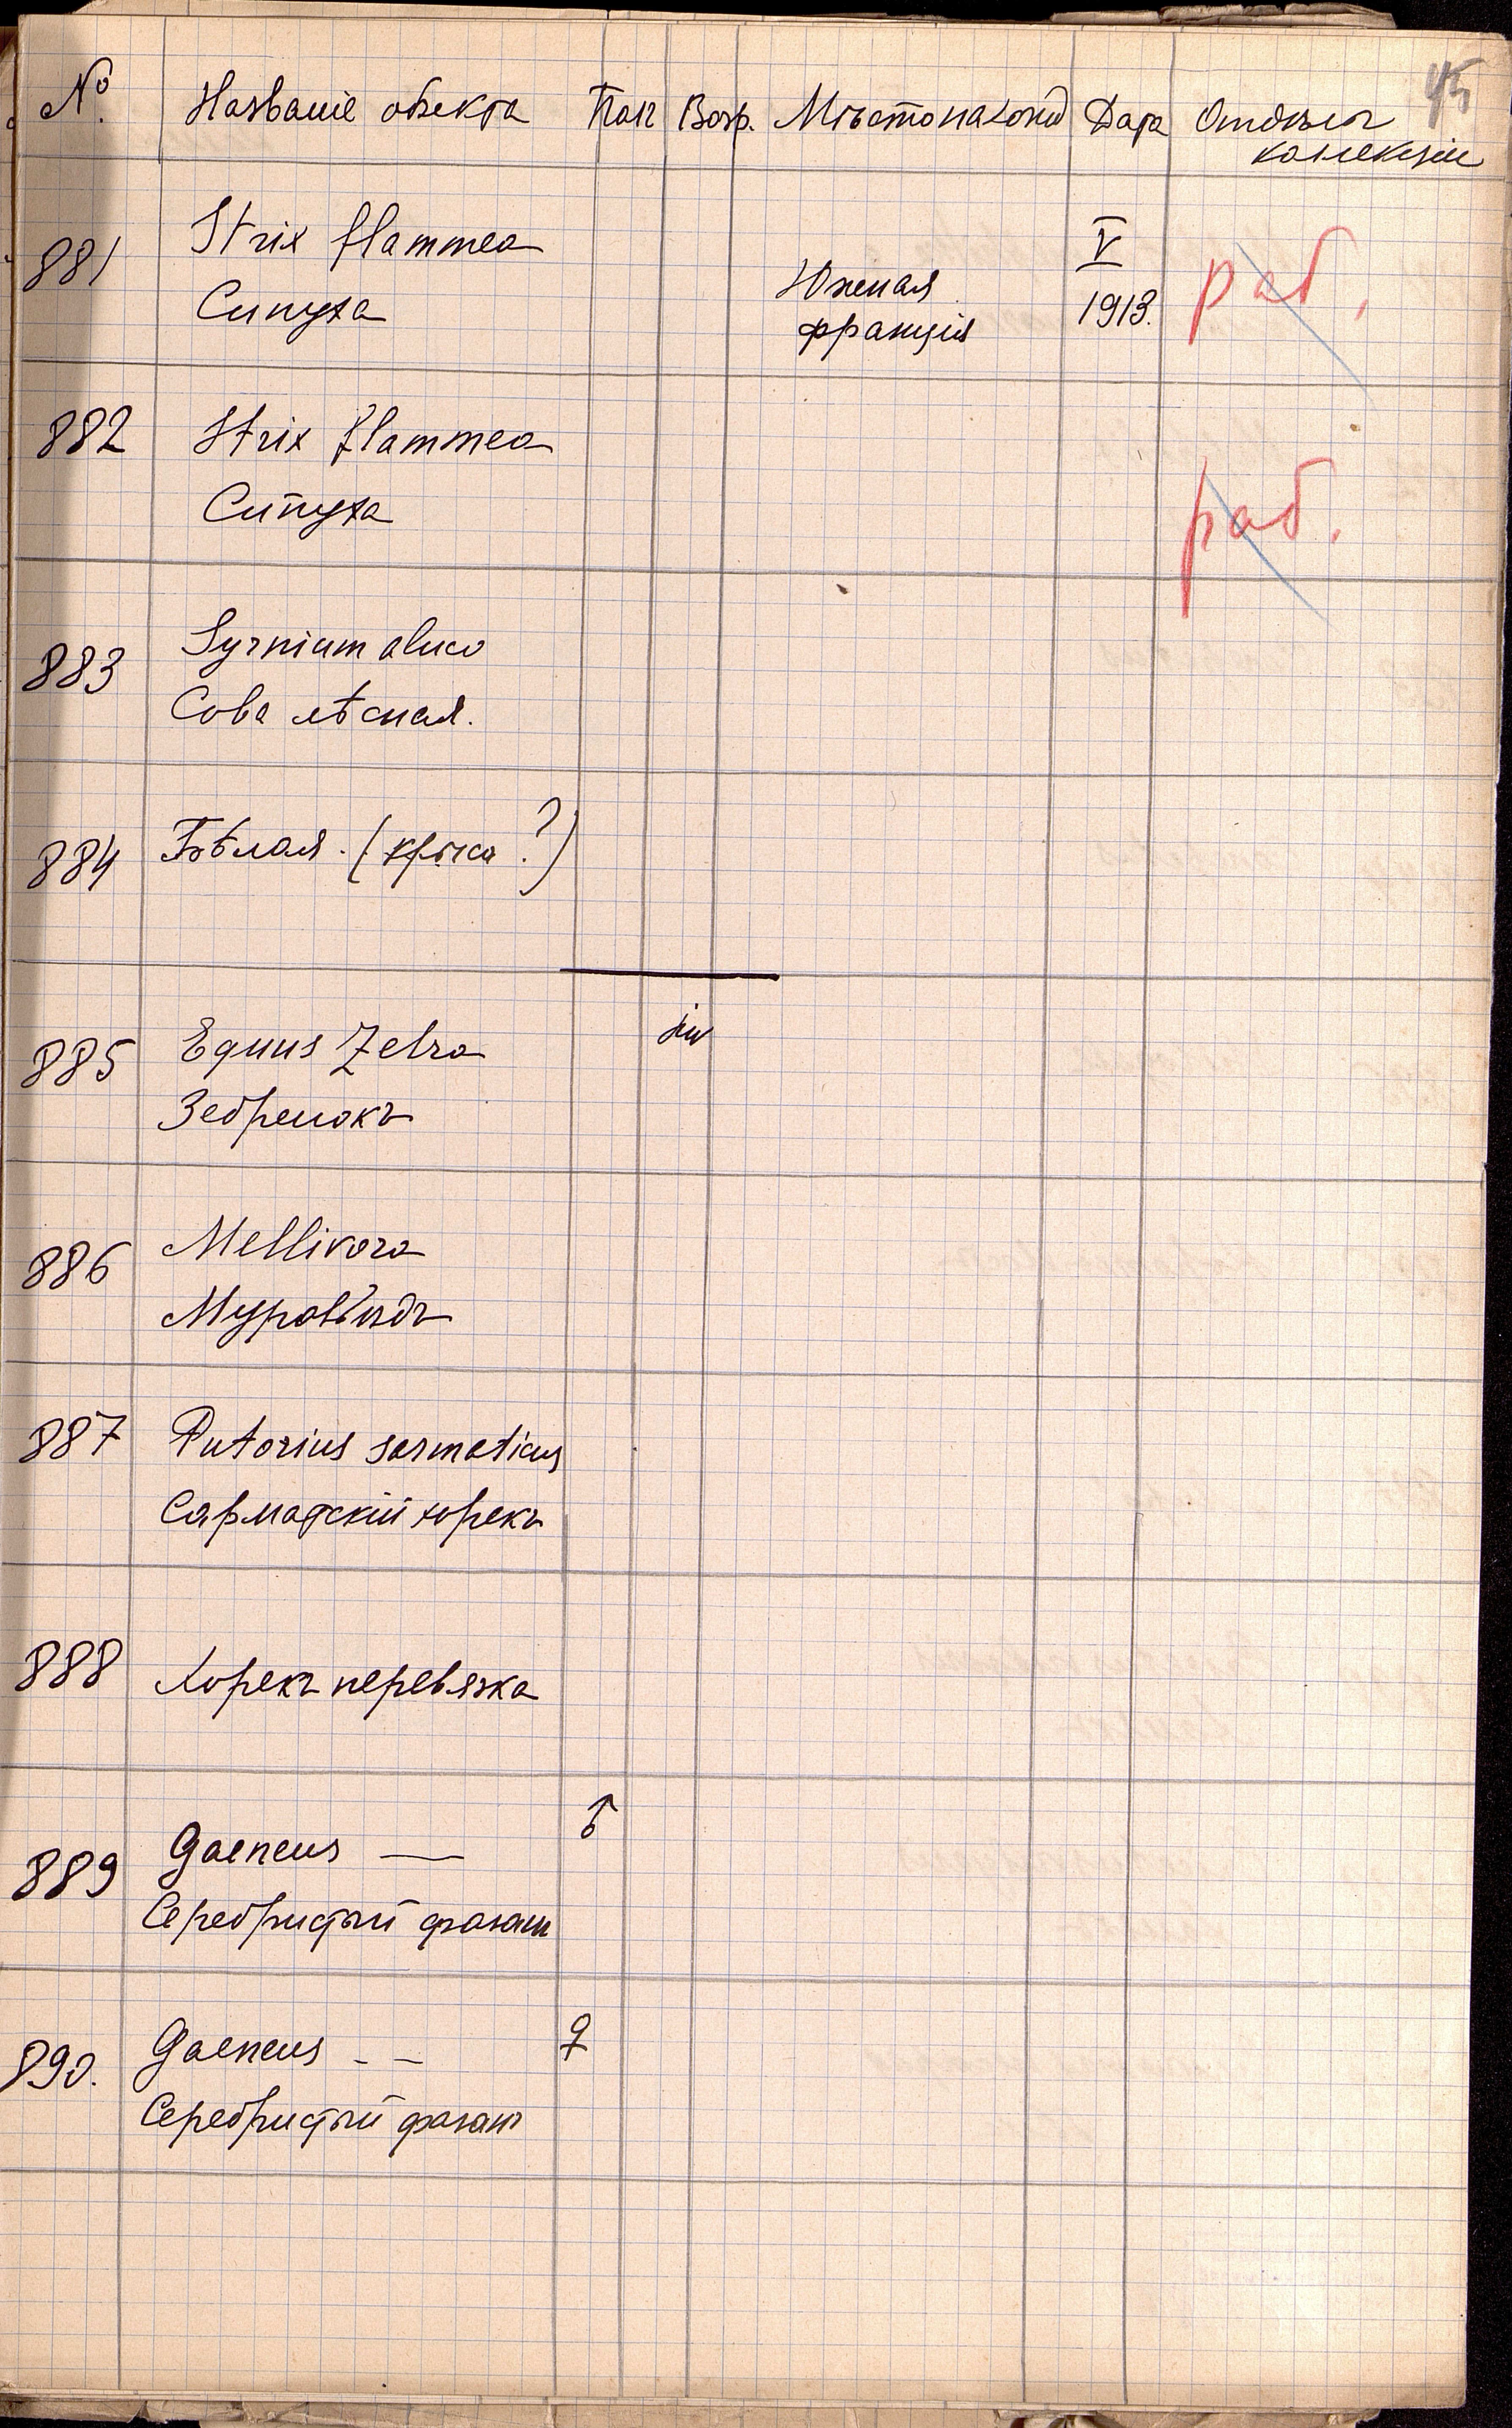 45
№. Названіе объекта Полъ Возр. Мѣстонахожд Дата Отдѣлъ
коллекціи
881 Strix flammea V раб.
Сипуха Южная 1913.
Франція
882 Strix flammea раб.
Сипуха
883 Syrnium aluco
Сова лѣсная.
884 Бѣлая. (крыса?)
885 Equus Zebra juv
Зебренокъ
886 Mellivora
Муравьѣдъ
887 Putorius sarmaticus
Сарматскій хорекъ
888 Хорекъ перевязка
889 Gaeneus — ♂
Серебристый фазанъ
890. Gaeneus - - ♀
Серебристый фазанъ